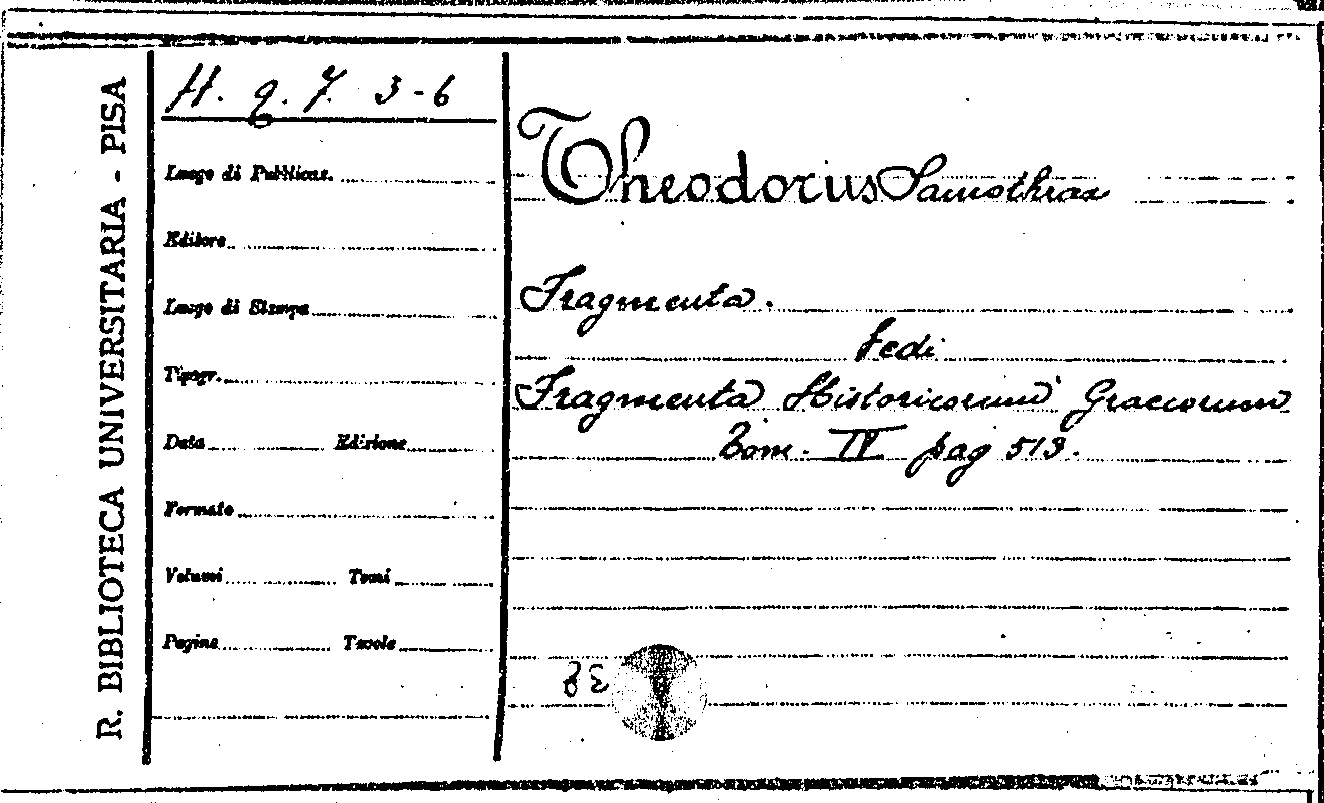 R. BIBLIOTECA UNIVERSITARIA - PISA
H. q. 7. 3-6
Luogo di Pubblicaz.
Editore
Luogo di Stampa
Tipogr.
Data Edizione
Formato
Volumi Tomi
Pagine Tavole
Theodorus Samothrax
Fragmenta.
Vedi
Fragmenta Historicorum Graecorum
Tom. IV pag 513.